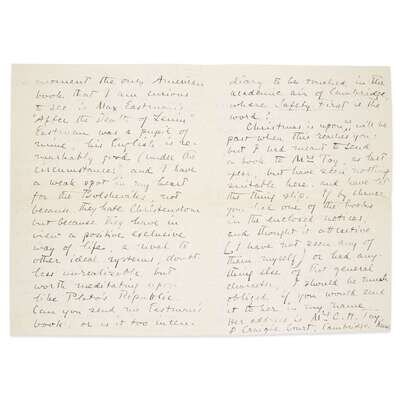 moment the only American
book that I am curious
to see is Max Eastman's
"After the Death of Lenin"
Eastman was a pupil of
mine, his English is re-
markably good (under the
circumstances) and I have
a weak spot in my heart
for the Bolsheviks, not
because they hate Christendom
but because they have in
view a positive exclusive
way of life, a rival to
other ideal systems, doubt-
less unrealizable but
worth meditating upon
like Plato's Republic.
Can you send me Eastman's
book, or is it too incen-
diary to be touched in the
academic air of Cambridge,
where Safety First is the
word?
Christmas is upon us, will be
past when this reaches you
but I had meant to send
a book to Mrs Toy, as last
year, but have seen nothing
suitable here, and have let
the thing slip. If by chance
you like one of the books
in the enclosed notices,
and thought it attractive
(I have not seen any of
them myself) or had any-
thing else of this general
character, I should be much
obliged if you would send
it to her in my name
Her address is Mrs C. H. Toy,
Craigie Court, Cambridge